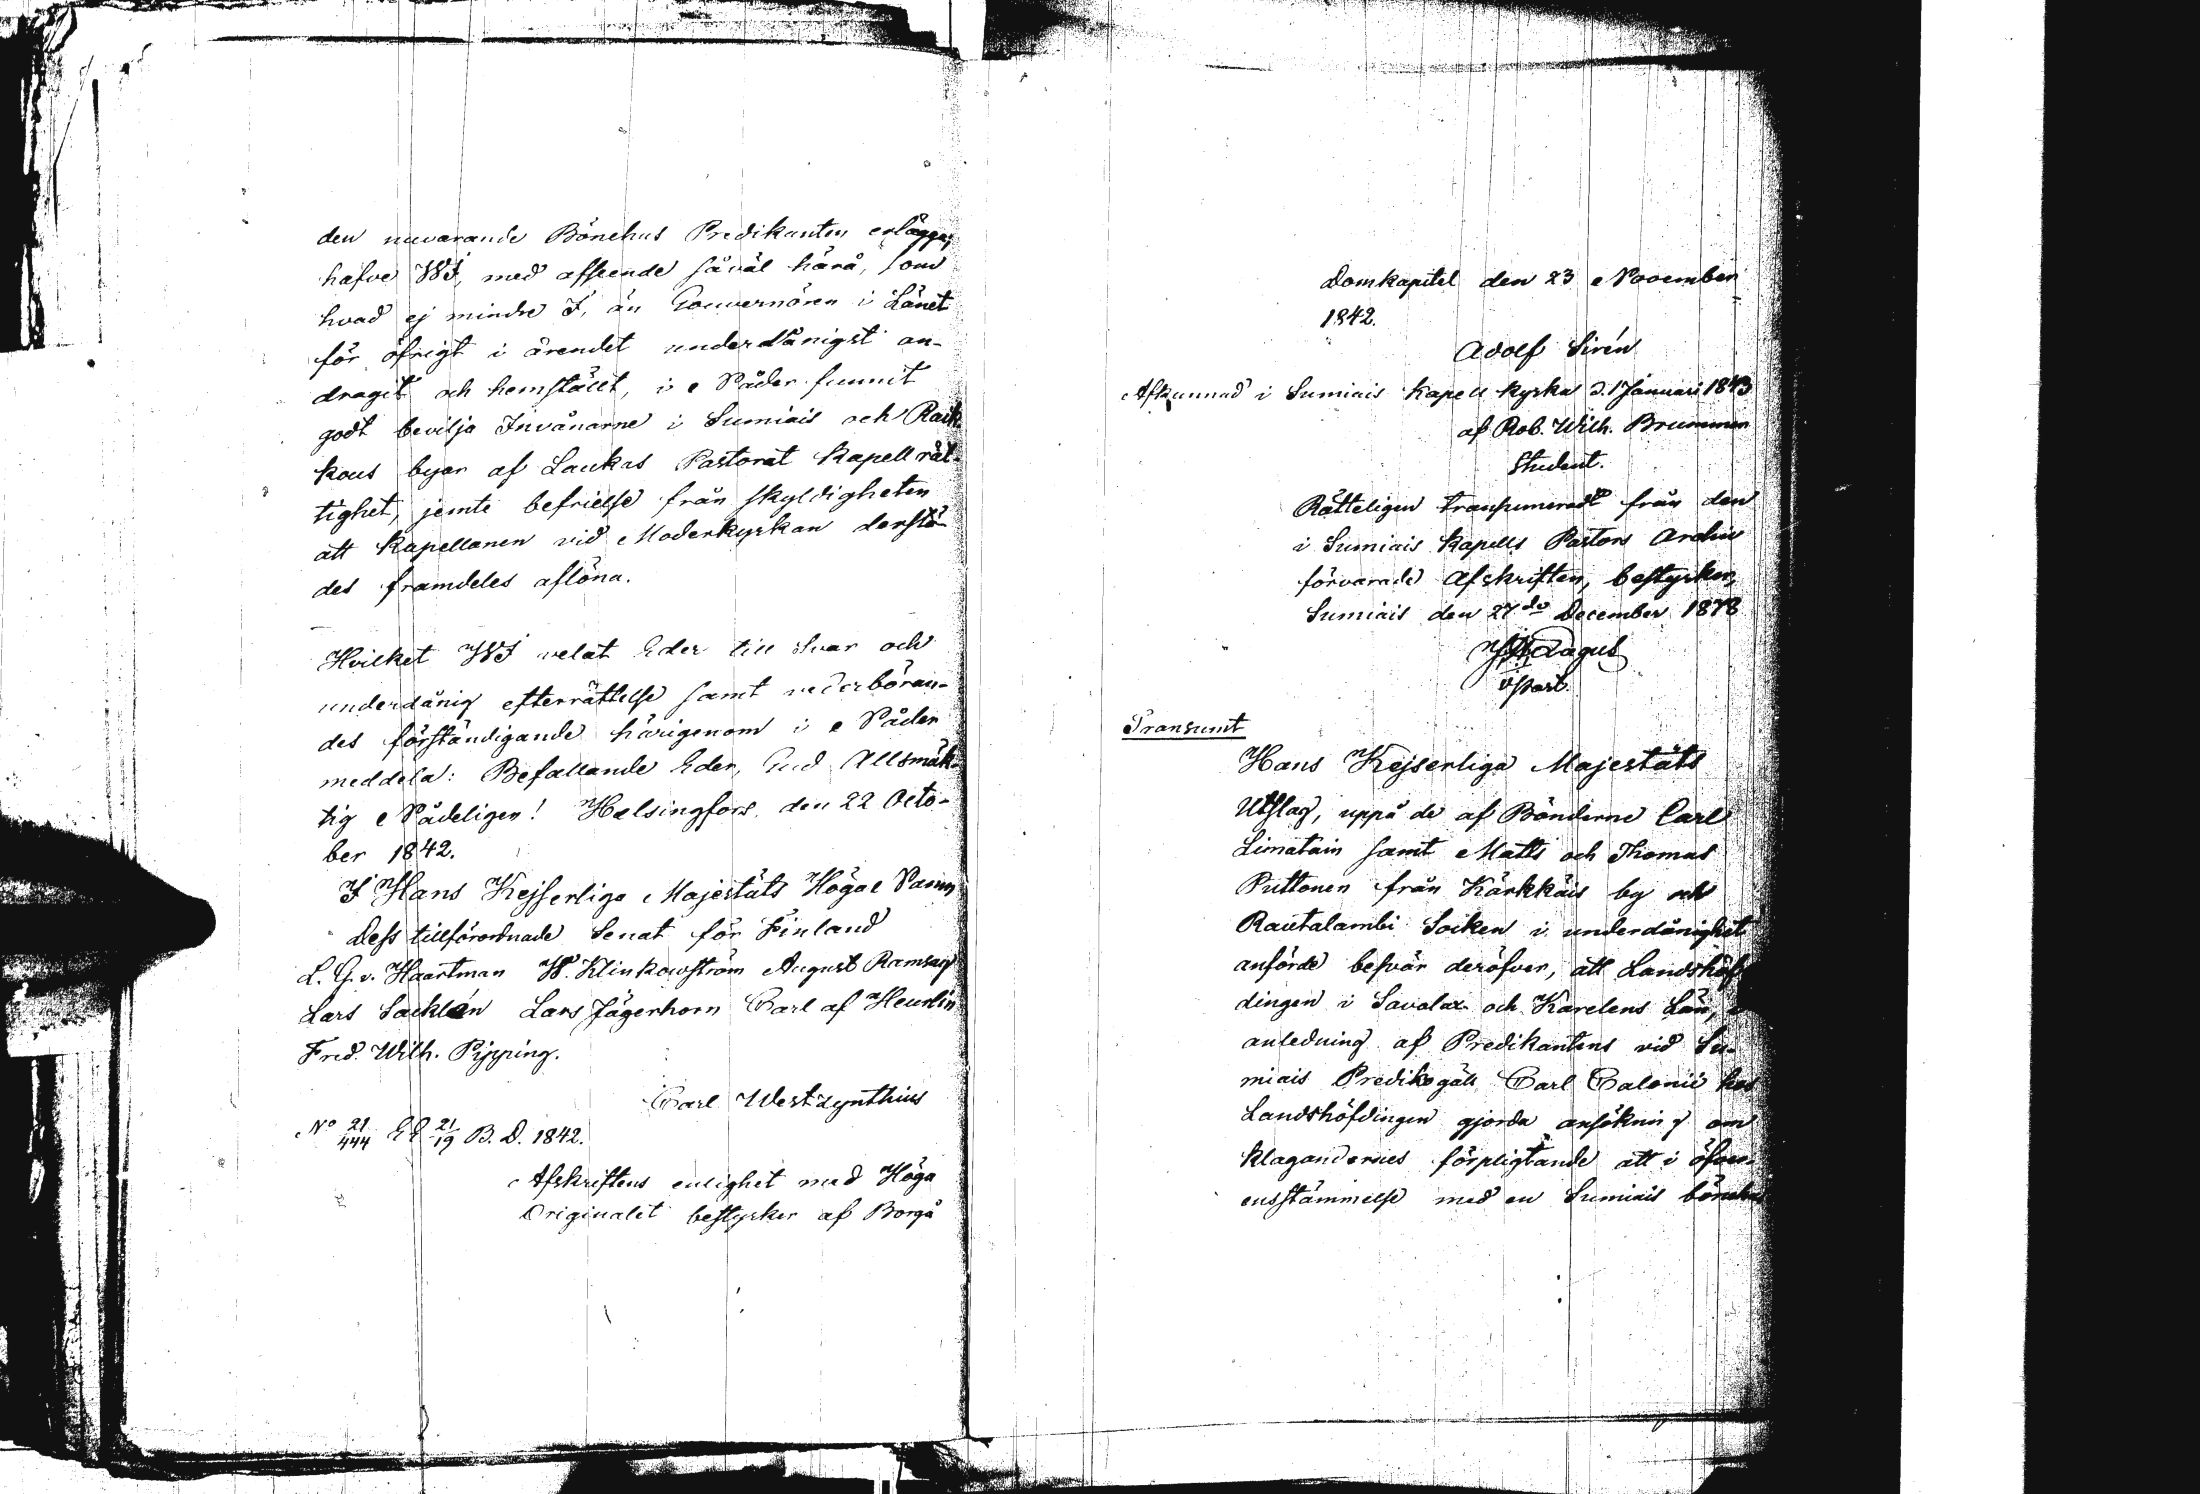 den nuvarande Bönehus Predikanten erlägga;
hafve WJ, med afseende såväl härå, som
hvad ej mindre J, än Gouvernören i Länet
för öfrigt i ärendet underdånigst an-
dragit och hemställt, i Nåder funnit
godt bevilja Invånarne i Sumiais och Raik
kous byar af Laukas Pastorat Kapell rät-
tighet, jemte befrielse från skyldigheten
att Kapellanen vid Moderkyrkan derstä-
des framdeles aflöna.
Hvilket WJ velat Eder till Svar och
underdånig efterrättelse samt vederböran-
des förständigande härigenom i Nåder
meddela: Befallande Eder, Gud Allsmäk-
tig Nådeligen! Helsingfors, den 22 Octo-
ber 1842.
I Hans Kejserliga Majestäts Höga Namn
Dess tillförordnade Senat för Finland
L. G. v. Haartman W. Klinkowström August Ramsay
Lars Sacklén Lars Jägerhorn Carl af Heurlin
Fred. Wilh. Pipping.
Carl Westzynthius
No 21/444 EE 21/19 B. D. 1842.
Afskriftens enlighet med Höga
Originalet bestyrker af Borgå
Domkapitel den 23 November
1842.
Adolf Sirén
Afkunnad i Sumiais Kapell kyrka d. 1 Januari 1843
af Rob. Wilh. Brummer
Student.
Rätteligen transumeradt från den
i Sumiais Kapells Pastors Archiv
förvarade Afskriften, bestyrker,
Sumiais den 27de December 1878
Lagus
Transumt
Hans Kejserliga Majestäts
Utslag, uppå de af Bönderne Carl
Limatain samt Matts och Thomas
Puttonen från Kärkkäis by och
Rautalambi Socken i underdånighet
anförde besvär deröfver, att Landshöf-
dingen i Savolax och Karelens Län,
anledning af Predikantens vid Su-
miais Predikogäll Carl Calonii hos
Landshöfdingen gjorda ansökning om
klagandernes förpligtande att i öfver-
ensstämmelse med en Sumiais bönehus